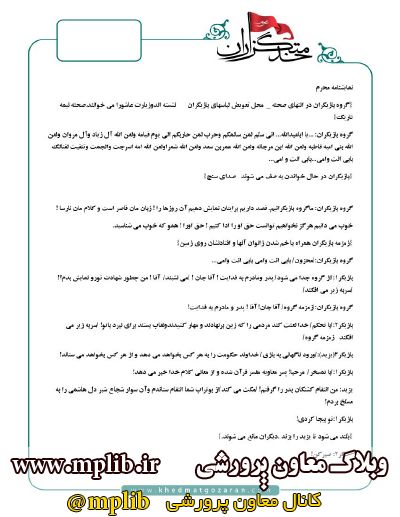 خدمتگزاران
نمایشنامه محرم
(گروه بازیگران در انتهای صحنه _ محل تعویض لباسهای بازیگران نشسته اندوزیارت عاشورا می خوانند.صحنه نیمه
تاریک)
گروه بازیگران: ...یا اباعبدالله... انی سلم لمن سالمکم وحرب لمن حاربکم الی یوم قیامه ولعن الله آل زیاد وآل مروان ولعن
الله بنی امیه قاطبه ولعن الله ابن مرجانه ولعن الله عمربن سعد ولعن الله شمرا ولعن الله امه اسرجت والجمت وتنقبت لقتالک
بابی انت وامی...بابی انت و امی...
(بازیگران در حال خواندن به صف می شوند صدای سنج)
گروه بازیگران: ماگروه بازیگرانیم. قصد داریم برایتان نمایش دهیم آن روزها را ! زبان مان قاصر است و کلام مان نارسا !
خوب می دانیم هرگز نخواهیم توانست حق اورا ادا کنیم ! حق اورا ! همو که خوب می شناسید.
(زمزمه بازیگران همراه با خم شدن زانوان آنها و افتادنشان روی زمین)
گروه بازیگران:(محزون) بابی انت وامی بابی انت وامی...
بازیگر۱:(از گروه جدا می شود) پدر ومادرم به فدایت ! آقا جان ! (می نشیند) آقا ! من چطور شهادت تورو نمایش بدم؟!
(سربه زیر می افکند)
گروه بازیگران:(زمزمه گروه) آقا جان! آقا ! پدر و مادرم به فدایت!
بازیگر۲:(با تحکم) خدا لعنت کند مردمی را که زین برنهادند و مهار کشیدندونقاب بستند برای نبرد باتو! (سربه زیر می
افکند زمزمه گروه)
بازیگر۳(یزید):(ورود ناگهانی به بازی) خداوند حکومت را به هر کس بخواهد می دهد و از هر کس بخواهد می ستاند!
بازیگر۱:(با تمسخر) مرحبا! پسر معاویه مفسر قرآن شده و از معانی کلام خدا خبر می دهد!
یزید: من انتقام کشتگان بدر را گرفتم! (مکث می کند)از بوتراب شما انتقام ستاندم وآن سوار شجاع شیر دل هاشمی را به
مسلخ بردم!
بازیگر۱:تو بیجا کردی!
(بلند می شود تا یزید را بزند .دیگران مانع می شوند.)
www.khedmatgozaran.com
وبلاگ معاون پرورشی www.mplib.ir
کانال معاون پرورشی @mplib